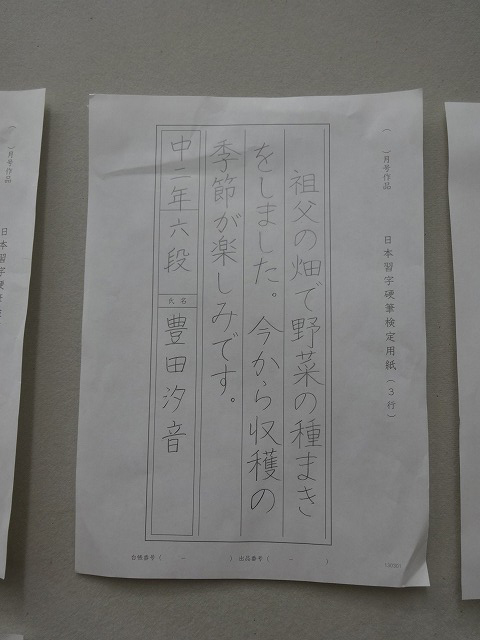 （　　）月号作品　日本習字硬筆検定用紙（3行）
祖父の畑で野菜の種まき
をしました。今から収穫の
季節が楽しみです。
中二年六段　氏名　豊田汐音
台帳番号（　　－　　）出品番号（　　－　　）
（　　）月号作品